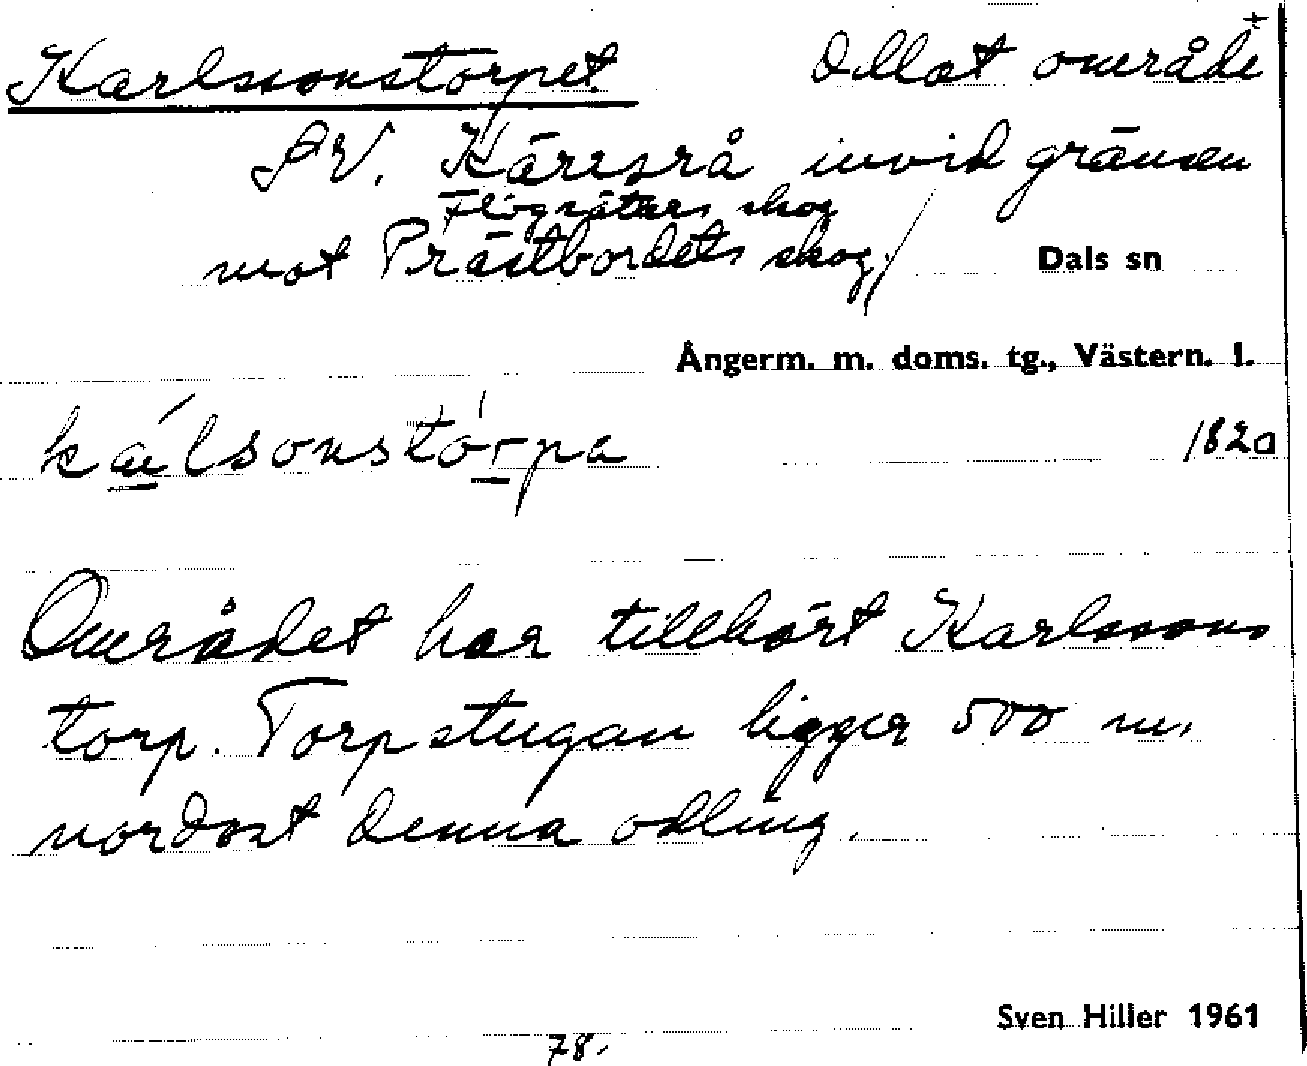 Karlssonstorpet. Odlat område +
SV. Kärrsrå invid gränsen
Flögsåters skog
mot Prästbordets skog. / Dals sn
Ångerm. m. doms. tg., Västern. l.
kálsonstórpa 1820
Området har tillhört Karlssons
torp. Torpstugan ligger 500 m.
nordost denna odling.
Sven Hiller 1961
78.